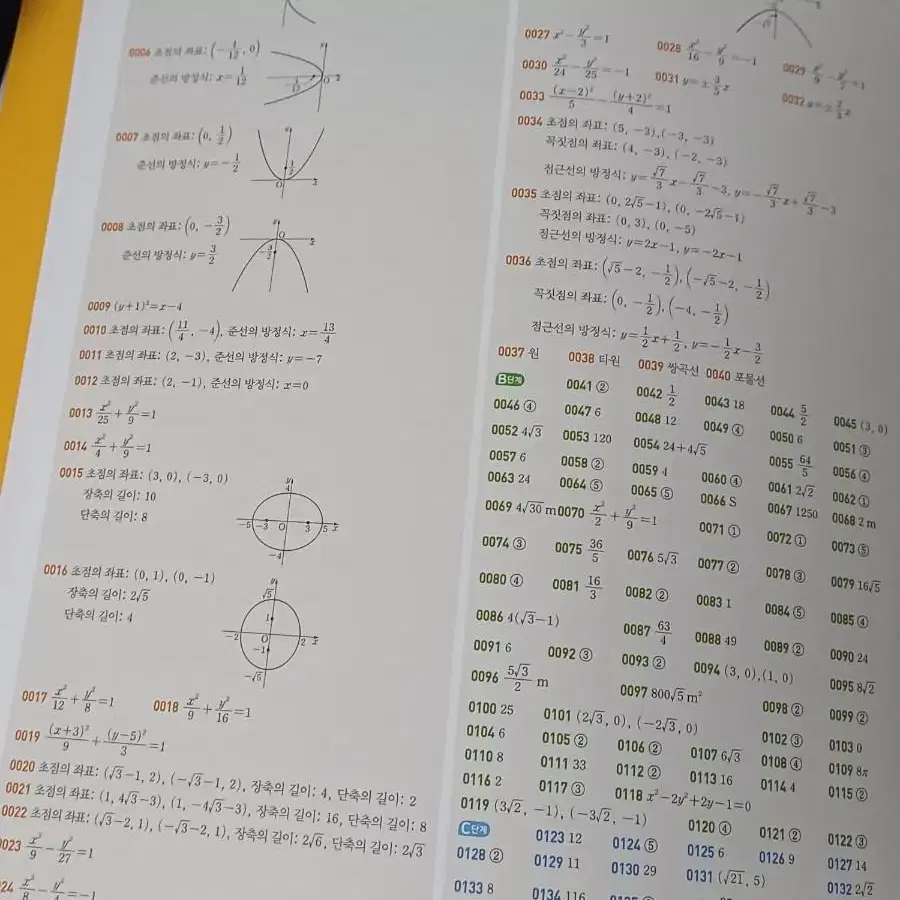 0006 초점의 좌표: (-1/12, 0)
준선의 방정식: x=1/12
0007 초점의 좌표: (0, 1/2)
준선의 방정식: y=-1/2
0008 초점의 좌표: (0, -3/2)
준선의 방정식: y=3/2
0009 (y+1)²=x-4
0010 초점의 좌표: (11/4, -4), 준선의 방정식: x=13/4
0011 초점의 좌표: (2, -3), 준선의 방정식: y=-7
0012 초점의 좌표: (2, -1), 준선의 방정식: x=0
0013 x²/25+y²/9=1
0014 x²/4+y²/9=1
0015 초점의 좌표: (3, 0), (-3, 0)
장축의 길이: 10
단축의 길이: 8
0016 초점의 좌표: (0, 1), (0, -1)
장축의 길이: 2√5
단축의 길이: 4
0017 x²/12+y²/8=1 0018 x²/9+y²/16=1
0019 (x+3)²/9+(y-5)²/3=1
0020 초점의 좌표: (√3-1, 2), (-√3-1, 2), 장축의 길이: 4, 단축의 길이: 2
0021 초점의 좌표: (1, 4√3-3), (1, -4√3-3), 장축의 길이: 16, 단축의 길이: 8
0022 초점의 좌표: (√3-2, 1), (-√3-2, 1), 장축의 길이: 2√6, 단축의 길이: 2√3
0023 x²/9-y²/27=1
24 x²/8-y²/4=-1
0027 x²-y²/3=1 0028 x²/16-y²/9=-1 0029 x²/9-y²/7=1
0030 x²/24-y²/25=-1 0031 y=±3/5x 0032
0033 (x-2)²/5-(y+2)²/4=1
0034 초점의 좌표: (5, -3), (-3, -3)
꼭짓점의 좌표: (4, -3), (-2, -3)
점근선의 방정식: y=√7/3x-√7/3-3, y=-√7/3x+√7/3-3
0035 초점의 좌표: (0, 2√5-1), (0, -2√5-1)
꼭짓점의 좌표: (0, 3), (0, -5)
점근선의 방정식: y=2x-1, y=-2x-1
0036 초점의 좌표: (√5-2, -1/2), (-√5-2, -1/2)
꼭짓점의 좌표: (0, -1/2), (-4, -1/2)
점근선의 방정식: y=1/2x+1/2, y=-1/2x-3/2
0037 원 0038 타원 0039 쌍곡선 0040 포물선
B단계 0041 ② 0042 1/2 0043 18 0044 5/2 0045 (3, 0)
0046 ④ 0047 6 0048 12 0049 ④ 0050 6 0051 ③
0052 4√3 0053 120 0054 24+4√5 0055 64/5 0056 ④
0057 6 0058 ② 0059 4 0060 ④ 0061 2√2 0062 ①
0063 24 0064 ⑤ 0065 ⑤ 0066 S 0067 1250 0068 2 m
0069 4√30 m 0070 x²/2+y²/9=1 0071 ① 0072 ① 0073 ⑤
0074 ③ 0075 36/5 0076 5√3 0077 ② 0078 ③ 0079 16√5
0080 ④ 0081 16/3 0082 ② 0083 1 0084 ⑤ 0085 ④
0086 4(√3-1) 0087 63/4 0088 49 0089 ② 0090 24
0091 6 0092 ③ 0093 ② 0094 (3, 0), (1, 0) 0095 8√2
0096 5√3/2 m 0097 800√5 m² 0098 ② 0099 ②
0100 25 0101 (2√3, 0), (-2√3, 0) 0102 ③ 0103 0
0104 6 0105 ② 0106 ② 0107 6√3 0108 ④ 0109 8π
0110 8 0111 33 0112 ② 0113 16 0114 4 0115 ②
0116 2 0117 ③ 0118 x²-2y²+2y-1=0
0119 (3√2, -1), (-3√2, -1) 0120 ④ 0121 ② 0122 ③
C단계 0123 12 0124 ⑤ 0125 6 0126 9 0127 14
0128 ② 0129 11 0130 29 0131 (√21, 5) 0132 2√2
0133 8 0134 116